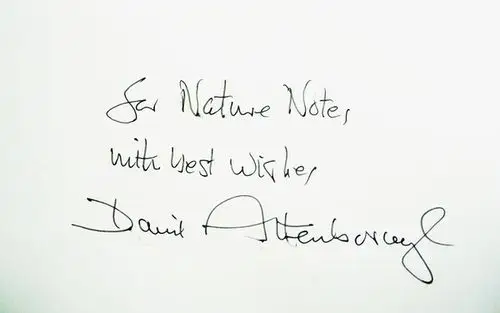 for Nature Notes,
with best wishes,
David Attenborough